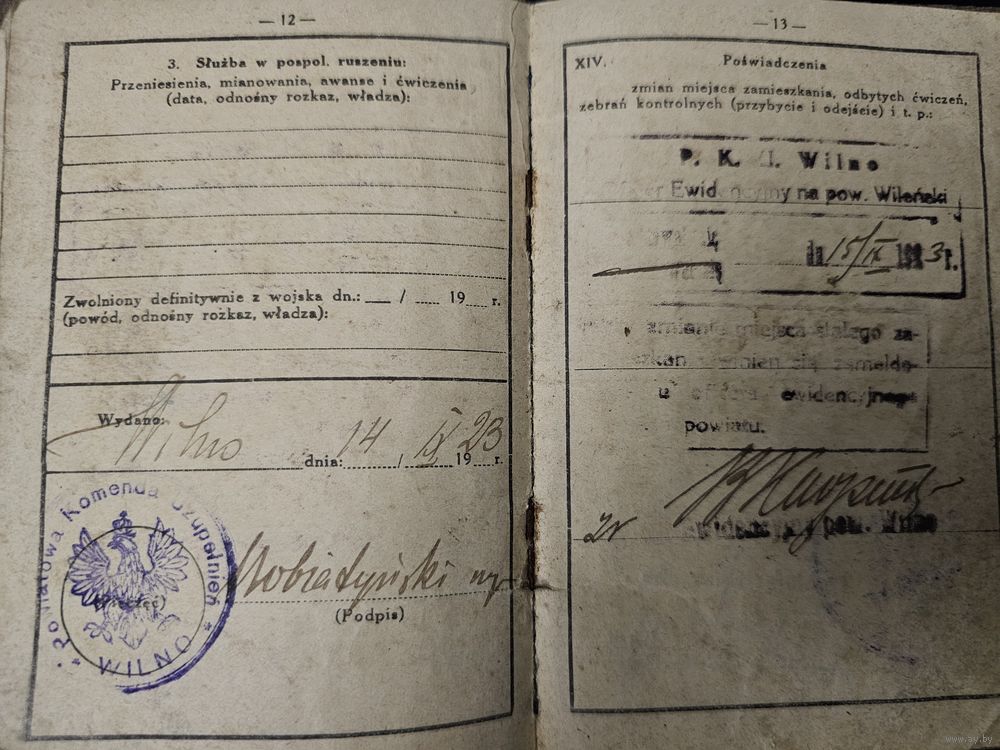 — 12 —
3. Służba w pospol. ruszeniu:
Przeniesienia, mianowania, awanse i ćwiczenia
(data, odnośny rozkaz, władza):
Zwolniony definitywnie z wojska dn.: / 19 r.
(powód, odnośny rozkaz, władza):
Wydano: Wilno
dnia: 14, IX 1923 r.
Powiatowa Komenda Uzupełnień
* WILNO *
(Podpis)
— 13 —
XIV. Poświadczenia
zmian miejsca zamieszkania, odbytych ćwiczeń,
zebrań kontrolnych (przybycie i odejście) i t. p.:
P. K. U. Wilno
Ewidencyjny na pow. Wileński
15/IX 3 r.
miejsca stałego za-
się zameldo-
ewidencyjnego
powiatu.
pow. Wilno
www.ay.by